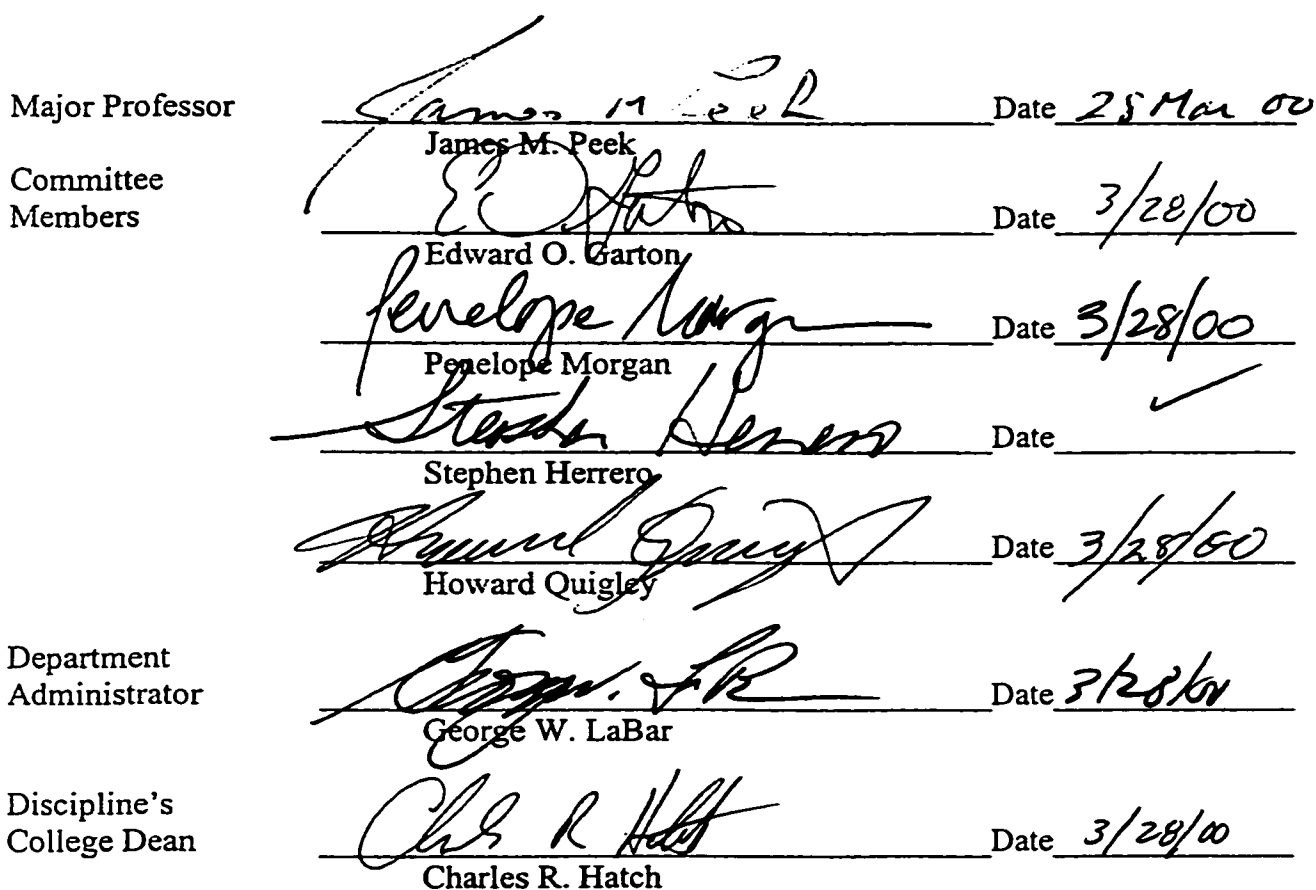 Major Professor James M Peek Date 28 Mar 00
James M. Peek
Committee
Members Date 3/28/00
Edward O. Garton
Penelope Morgan Date 3/28/00
Penelope Morgan
Stephen Herrero Date ✓
Stephen Herrero
Howard Quigley Date 3/28/00
Howard Quigley
Department
Administrator Date 3/28/00
George W. LaBar
Discipline's
College Dean Charles R Hatch Date 3/28/00
Charles R. Hatch